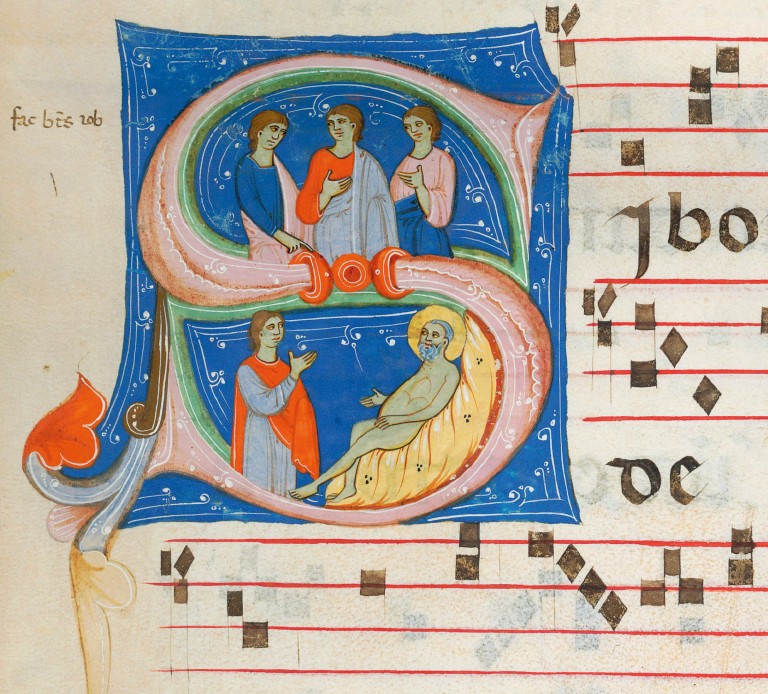 fac bt̄s iob
SIbo
de